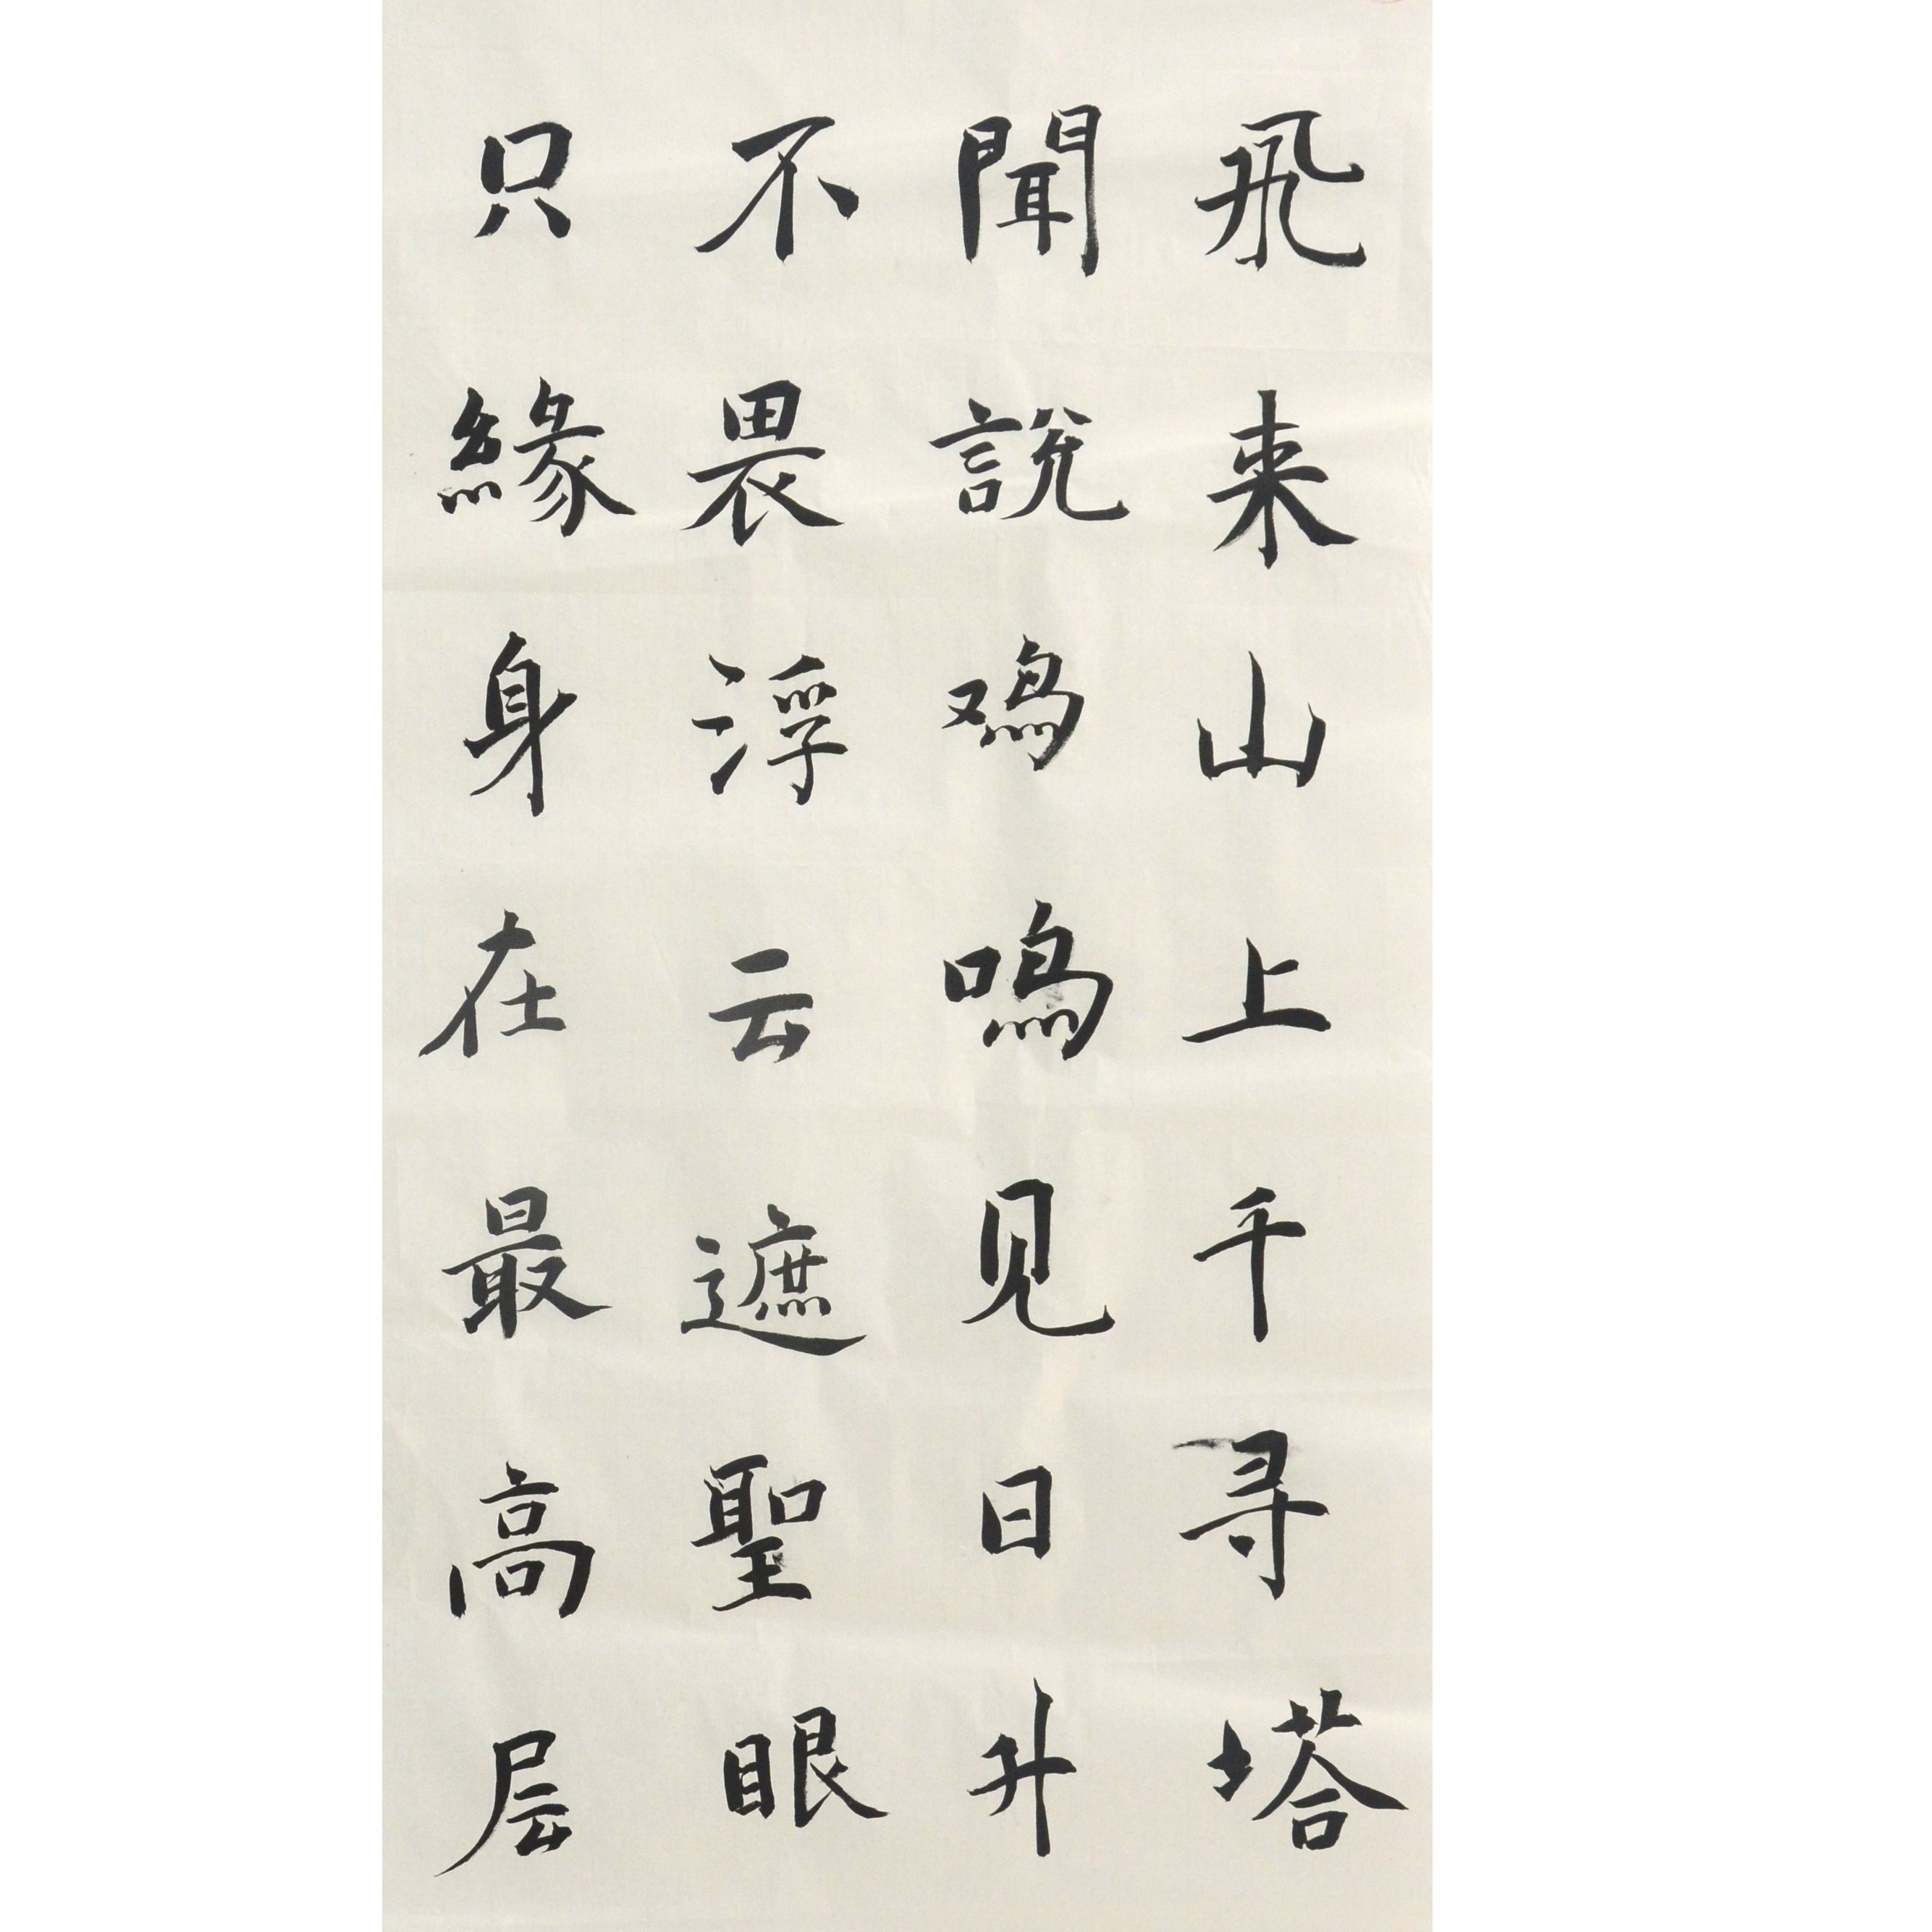 飛来山上千寻塔
聞說鸡鳴见日升
不畏浮云遮聖眼
只緣身在最高层